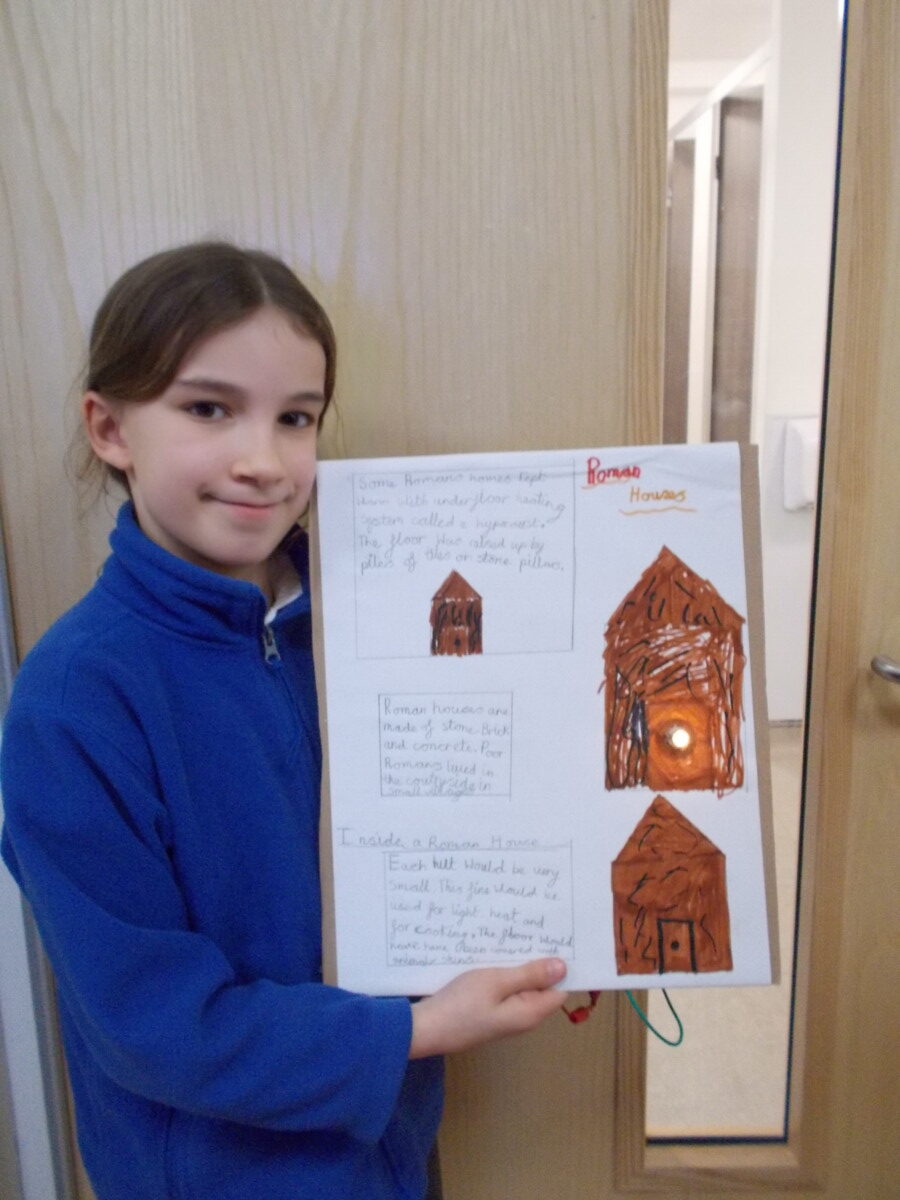 Some Romans homes kept
warm with underfloor heating
system called a hypocaust.
The floor was raised up by
pillers of tiles or stone pillars.
Roman
Houses
Roman houses are
made of stone. Brick
and concrete. Poor
Romans lived in
the countyside in
small villages
Inside a Roman House
Each hut would be very
small. This fire would be
used for light heat and
for cooking. The floor would
have been covered with
animals skins